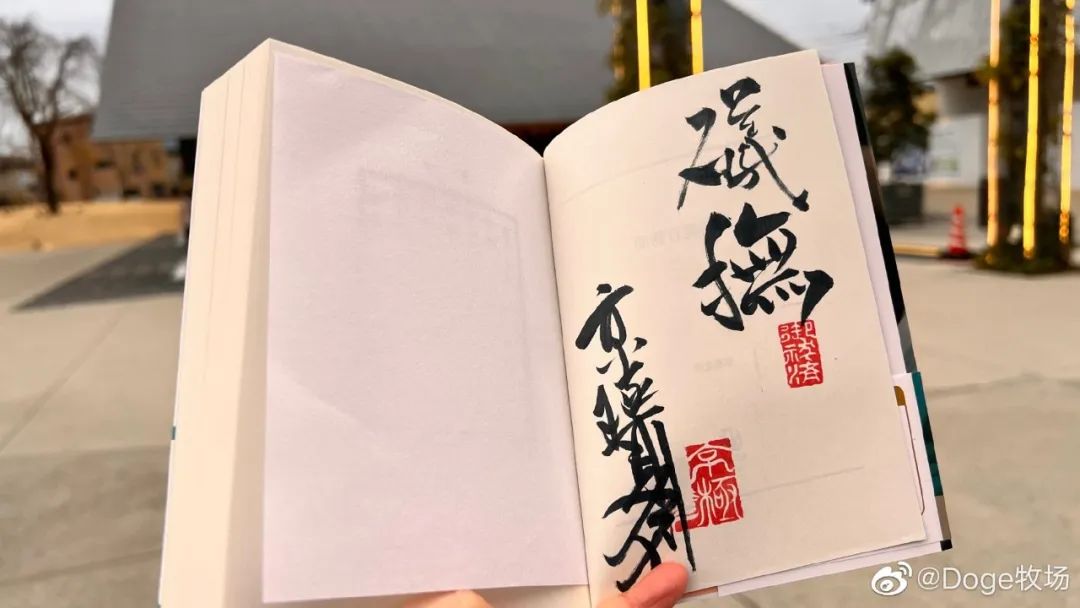 礒撫
御祓済
京極夏彦
京極
@Doge牧场